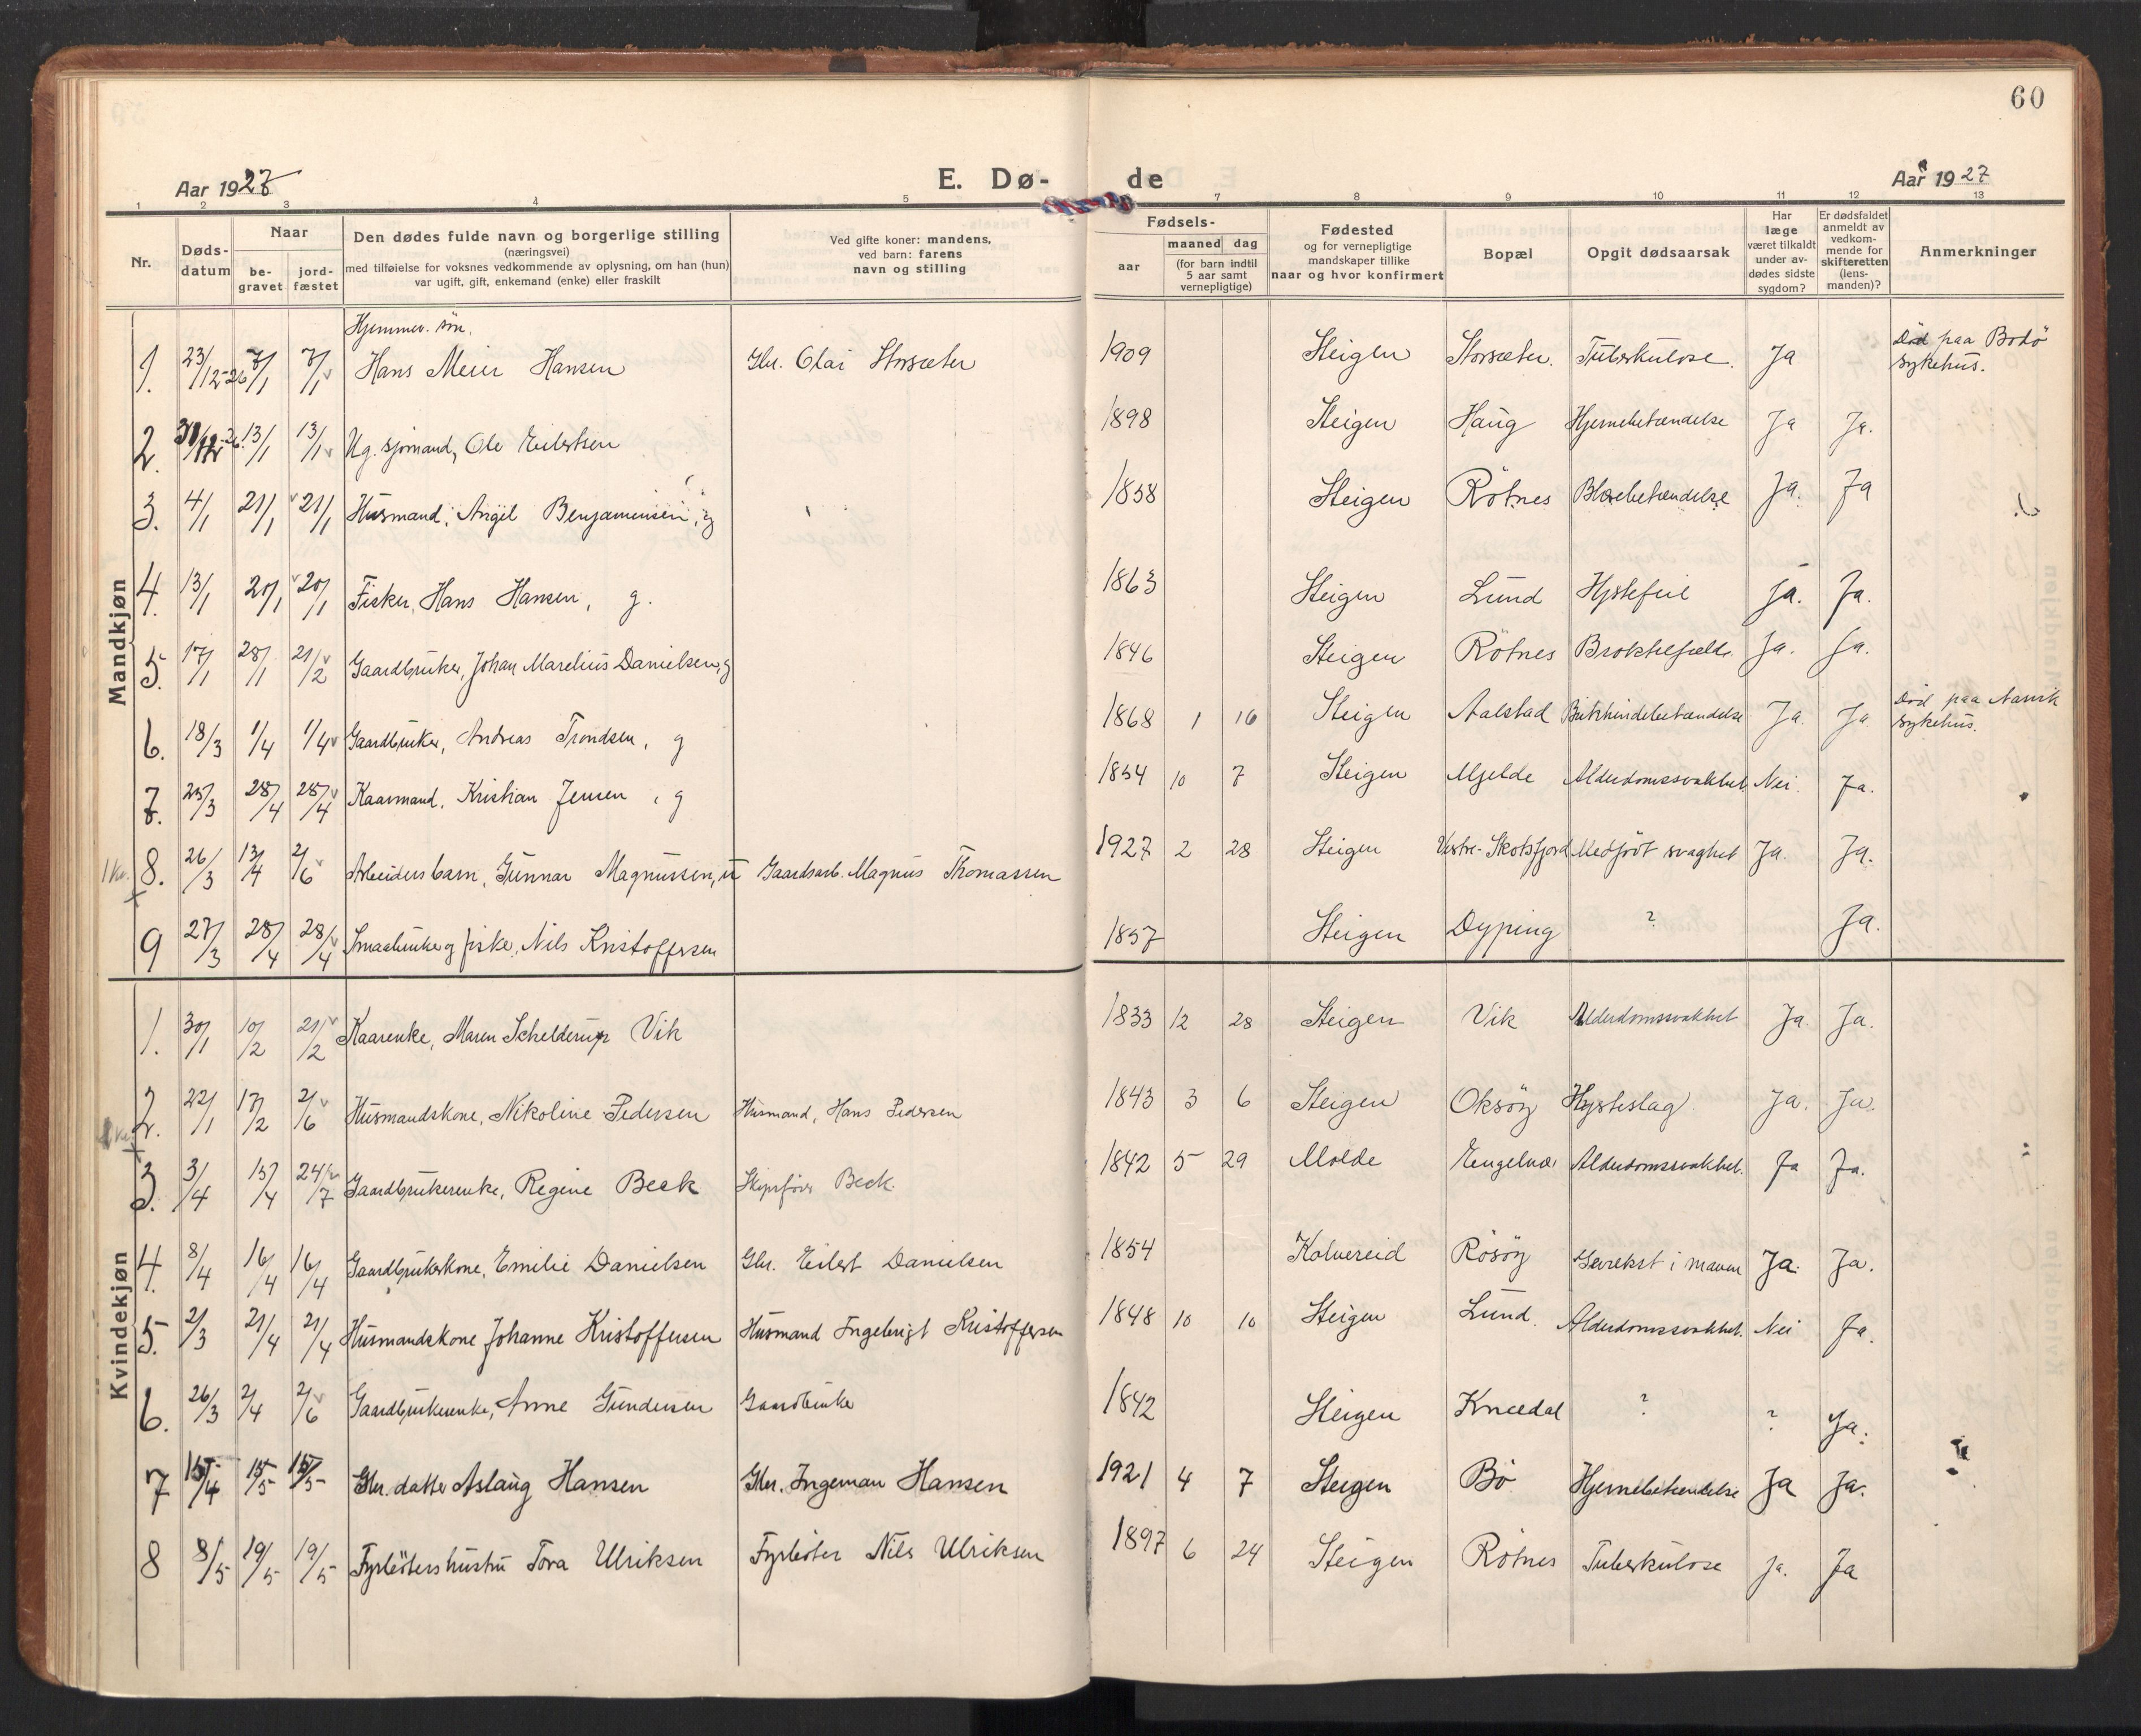 60
Aar 1927 E. Dø- de Aar 1927
1 2 3 4 5 7 8 9 10 11 12 13
Nr.
Døds-datum
Naar
be-gravet
jord-fæstet
Den dødes fulde navn og borgerlige stilling
(næringsvei)
med tilføielse for voksnes vedkommende av oplysning, om han (hun)
var ugift, gift, enkemand (enke) eller fraskilt
Ved gifte koner: mandens,
ved barn: farens
navn og stilling
Fødsels-
aar
maaned dag
(for barn indtil
5 aar samt
vernepligtige)
Fødested
og for vernepligtige
mandskaper tillike
naar og hvor konfirmert
Bopæl
Opgit dødsaarsak
Har
læge
været tilkaldt
under av-
dødes sidste
sygdom?
Er dødsfaldet
anmeldt av
vedkom-
mende for
skifteretten
(lens-
manden)?
Anmerkninger
Mandkjøn
Hjemmev. søn.
1. 23/12-26 7/1 7/1 Hans Meier Hansen Gbr. Olai Storsæter 1909 Steigen Storsæter. Tuberkulose. Ja Död paa Bodö
sykehus.
2. 13/1 13/1 Ug. sjømand, Ole Eilertsen 1898 Steigen Haug Hjernebetændelse Ja Ja.
3. 4/1 21/1 21/1 Husmand, Angel Benjaminsen, g 1858 Steigen Rötnes Blærebetændelse Ja. Ja
4. 13/1 20/1 20/1 Fisker, Hans Hansen, g. 1863 Steigen Lund Hjertefeil Ja. Ja.
5. 17/1 28/1 21/2 Gaardbruker, Johan Marelius Danielsen, g 1846 Steigen Rötnes Broktilfælde. Ja. Ja.
6. 18/3 1/4 1/4 Gaardbruker, Andreas Trondsen, g 1868 1 16 Steigen Aalstad Bukhindebetændelse Ja. Ja Död paa Narvik
sykehus.
7. 25/3 28/4 28/4 Kaarmand, Kristian Jensen, g 1854 10 7 Steigen Mjelde Alderdomssvakhet Nei. Ja.
8. 26/3 13/4 2/6 Arbeiders barn, Gunnar Magnussen, u Gaardsarb. Magnus Thomassen 1927 2 28 Steigen Vestre-Skotsfjord Medfödt svaghet Ja. Ja.
9 27/3 28/4 28/4 Smaabruker og fisker, Nils Kristoffersen 1857 Steigen Dyping ? Ja.
Kvindekjøn
1. 30/1 10/2 21/2 Kaarenke, Maren Schelderup Vik 1833 12 28 Steigen Vik Alderdomssvakhet Ja. Ja.
2. 22/1 17/2 2/6 Husmandskone, Nikoline Pedersen Husmand, Hans Pedersen 1843 3 6 Steigen Oksöy Hjerteslag Ja. Ja.
3. 3/4 15/4 24/7 Gaardbrukerenke, Regine Beck Skipsförer Beck. 1842 5 29 Molde Engelvær Alderdomssvakhet. Ja Ja.
4. 8/4 16/4 16/4 Gaardbrukerkone, Emilie Danielsen Gbr. Eilert Danielsen 1854 Kolvereid Rösöy Gevekst i maven Ja. Ja.
5. 2/3 21/4 21/4 Husmandskone Johanne Kristoffersen Husmand Ingebrigt Kristoffersen 1848 10 10 Steigen Lund. Alderdomssvakhet. Nei Ja.
6. 26/3 2/4 2/6 Gaardbrukerenke, Anne Gundersen Gaardbruker 1842 Steigen Knedal ? ? Ja.
7 15/4 15/5 15/5 Gbr. datter Aslaug Hansen Gbr. Ingeman Hansen 1921 4 7 Steigen Bö Hjernebetændelse Ja Ja.
8 8/5 19/5 19/5 Fyrböters hustru Tora Ulriksen Fyrböter Nils Ulriksen 1897 6 24 Steigen Rötnes Tuberkulose Ja. Ja